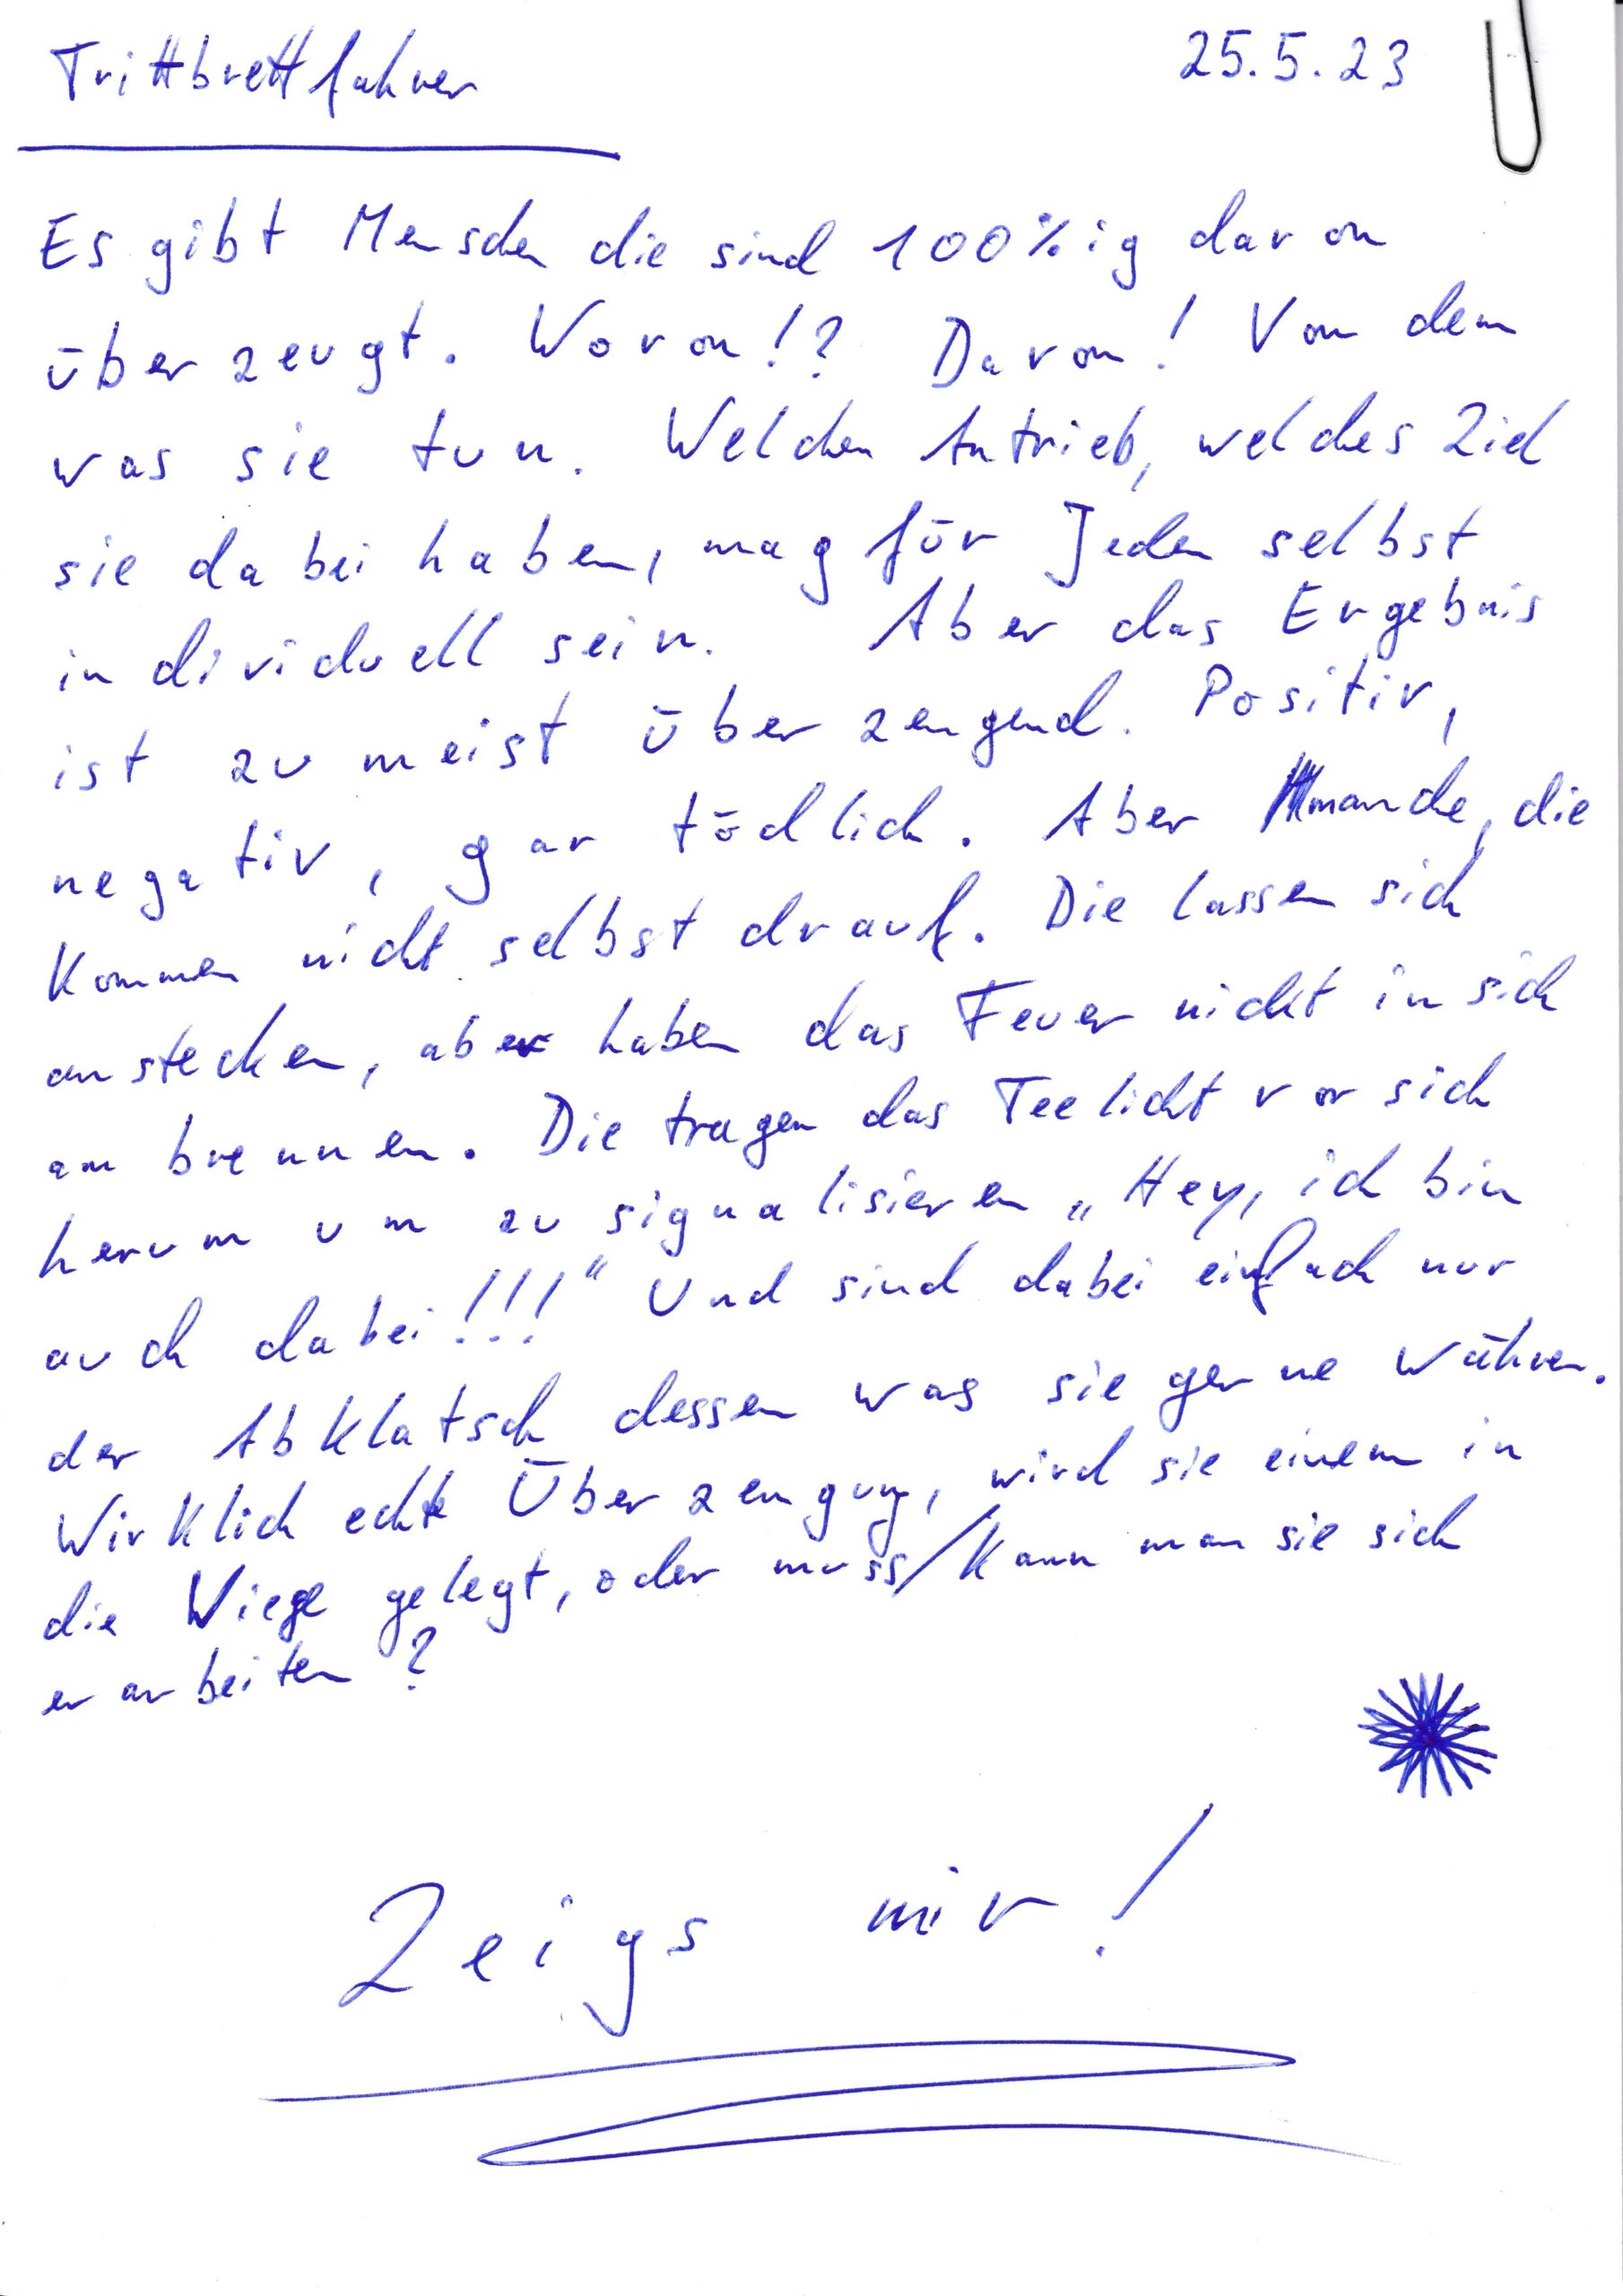 Trittbrettfahrer 25.5.23
Es gibt Menschen die sind 100%ig davon
überzeugt. Wovon!? Davon! Von dem
was sie tun. Welchen Antrieb, welches Ziel
sie dabei haben, mag für Jeden selbst
individuell sein. Aber das Ergebnis
ist zumeist überzeugend. Positiv,
negativ, gar tödlich. Aber manche, die
kommen nicht selbst drauf. Die lassen sich
anstecken, aber haben das Feuer nicht in sich
am brennen. Die tragen das Teelicht vor sich
herum um zu signalisieren „Hey, ich bin
auch dabei!!!“ Und sind dabei einfach nur
der Abklatsch dessen was sie gerne währen.
Wirklich echte Überzeugung, wird sie einem in
die Wiege gelegt, oder muss/kann man sie sich
erarbeiten?
Zeigs mir!